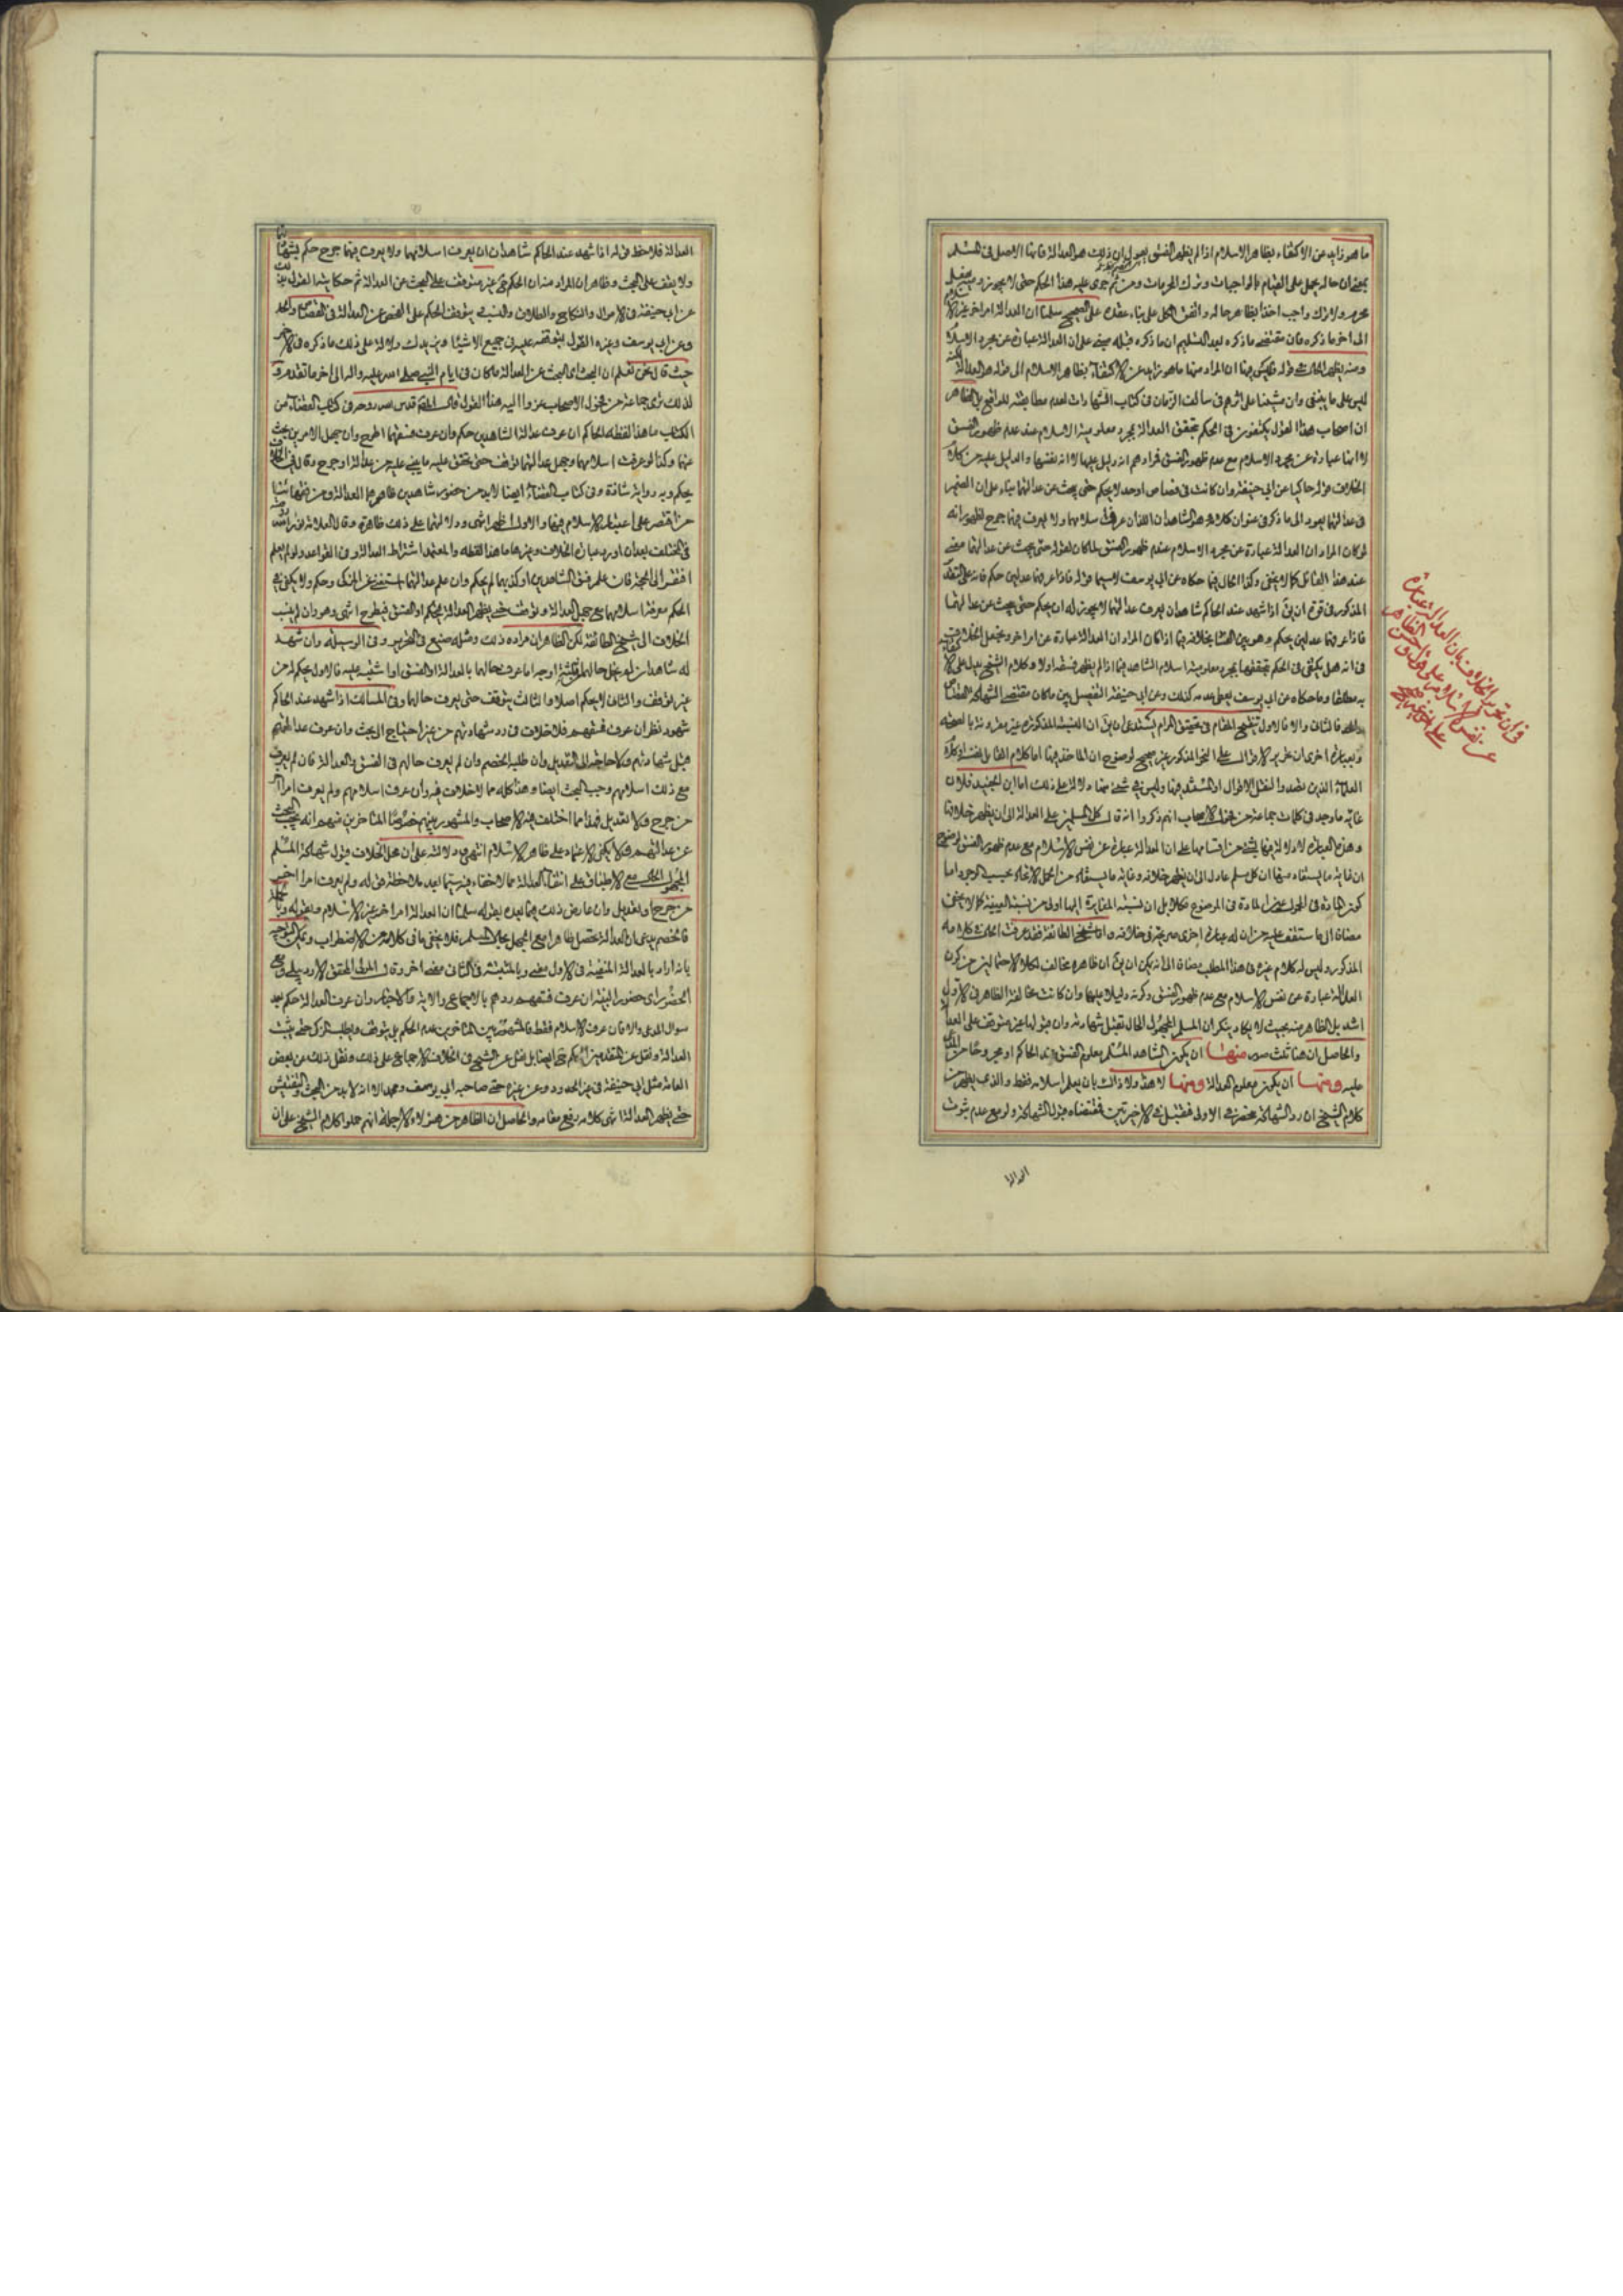 ما هو زايد عن الاكتفاء بظاهر الاسلام اذا لم يظهر الفسق يقول ان ذلك هو العدالة فانها الاصل فى المسلم
بمعنى ان حاله يحمل على القيام بالواجبات وترك المحرمات ومن ثم جرى عليه هذا الحكم حتى لا يجوز رميه بفعل
محرم ولا ترك واجب اخذا بظاهر حاله واتفق الكل على بناء عقده على الصحيح سلمنا ان العدالة امر اخر غير الاسلام
الى اخر ما ذكره فان مقتضى ما ذكره بعد التسليم ان ما ذكره قبله مبنى على ان العدالة عبارة عن مجرد الاسلام
ومنه يظهر الحال فى قوله فليس فيها ان المراد منها ما هو زايد عن الاكتفاء بظاهر الاسلام الى قوله هو العدالة
ليس على ما ينبغى وان مشينا على اثرهم فى سالف الزمان فى كتاب الشهادات لعدم مطابقته للواقع بل الظاهر
ان اصحاب هذا القول يكتفون فى الحكم بتحقق العدالة بمجرد معلومية الاسلام عند عدم ظهور الفسق
لا انها عبارة عن مجرد الاسلام مع عدم ظهور الفسق فمرادهم انه دليل عليها لا انه نفسها والدليل عليه من كلام
الخلاف قوله حاكيا عن ابى حنيفة وان كانت فى قصاص او حد لا يحكم حتى يبحث عن عدالتهما بناء على ان الضمير
فى عدالتهما يعود الى ما ذكر فى عنوان كلامه هو الشاهدان اللذان عرف اسلامهما ولا يعرف فيهما جرح لظهور انه
لو كان المراد ان العدالة عبارة عن مجرد الاسلام عند عدم ظهور الفسق لما كان لقوله حتى يبحث عن عدالتهما معنى
عند هذا القائل كما لا يخفى وكذا الحال فيما حكاه عن ابى يوسف لا سيما قوله فاذا عرفهما عدلين حكم فانه على التقدير
المذكور فى قوة ان يق اذا شهد عند الحاكم شاهدان يعرف عدالتهما لا يجوز له ان يحكم حتى يبحث عن عدالتهما
فاذا عرفهما عدلين يحكم وهو بين الفساد بخلافه فيما اذا كان المراد ان العدالة عبارة عن امر اخر ويجعل الخلاف
فى انه هل يكتفى فى الحكم بتحققها بمجرد معلومية اسلام الشاهد فيما اذا لم يظهر فسقه اولا وكلام الشيخ يدل على
به مطلقا وما حكاه عن ابى يوسف يعطى عدمه كذلك وعن ابى حنيفة التفصيل بين ما كان مقتضى الشهادة القصاص
والحد فالثانى والا فالاول تنقيح المقام فى تحقيق المرام يستدعى ان يق ان النسبة المذكورة غير مقرونة بالصحة
وبعبارة اخرى ان تحرير الاقوال على النحو المذكور غير صحيح لوضوح ان الماخذ فيها اما كلام القائل نفسه او كلام
العلماء الذين تصدوا لنقل الاقوال او المستند فيها وليس فى شئ منها دلالة على ذلك اما ابن الجنيد فلان
غاية ما وجد فى كلمات جماعة من فحول الاصحاب انهم ذكروا انه قال كل المسلمين على العدالة الى ان يظهر خلافها
وهذه العبارة لا دلالة فيها بشئ من اقسامها على ان العدالة عبارة عن نفس الاسلام مع عدم ظهور الفسق لوضوح
ان غاية ما يستفاد منها ان كل مسلم عادل الى ان يظهر خلافه وغاية ما يستفاد من الحمل الاتحاد بحسب الوجود اما
كون المادة فى المحمول عين المادة فى الموضوع فكلا بل ان نسبته المغايرة اليها اولى من نسبة العينية كما لا يخفى
مضافا الى ما ستقف عليه من ان له عبارة اخرى صريحة فى خلافه واما شيخ الطائفة فقد عرفت الحال فى كلامه
المذكور وليس له كلام غيره فى هذا المطلب مضافا الى انه يمكن ان يق ان ظاهره مخالف لكلا الاحتمالين من كون
العدالة عبارة عن نفس الاسلام مع عدم ظهور الفسق وكونه دليلا عليها وان كانت مخالفة الظاهر فى الاول
اشد بل الظاهر منه بحيث لا يكاد ينكر ان المسلم المجهول الحال تقبل شهادته وان قبولها غير متوقف على العدالة
والحاصل ان هنا ثلث صور منها ان يكون الشاهد المسلم معلوم الفسق عند الحاكم او مجروحا من المدعى
عليه ومنها ان يكون معلوم العدالة ومنها لا هذا ولا ذاك بان يعلم اسلامه فقط والذى يظهر من
كلام الشيخ ان رد الشهادة منحصر فى الاولى فتقبل فى الاخيرتين فمقتضاه قبول الشهادة ولو مع عدم ثبوت
العدالة
فى ان تحرير الخلاف بان العدالة عبارة
عن نفس الاسلام او على حسن الظاهر
العدالة فلاحظ قوله اذا شهد عند الحاكم شاهدان يعرف اسلامهما ولا يعرف فيهما جرح حكم بشهادتهما
ولا يقف على البحث وظاهر ان المراد منه ان الحكم ح غير متوقف على البحث عن العدالة ثم حكايته القول
عن ابى حنيفة فى الاموال والنكاح والطلاق والنسب يتوقف الحكم على الفحص عن العدالة فى القصاص والحد
وعن ابى يوسف وغيره القول بتوقفه عليه فى جميع الاشياء ويزيدك دلالة على ذلك ما ذكره فى الاخر
حيث قال نحن نعلم ان البحث اى البحث عن العدالة ما كان فى ايام النبى صلى الله عليه واله الى اخر ما تقدم
لذلك ترى جماعة من فحول الاصحاب عزوا اليه هذا القول قال المحقق قدس الله روحه فى كتاب القضاء من
الكتاب ما هذا لفظه الحاكم ان عرف عدالة الشاهدين حكم وان عرف فسقهما اطرح وان جهل الامرين بحث
عنهما وكذا لو عرف اسلامهما وجهل عدالتهما توقف حتى يتحقق عليه ما يبنى عليه من عدالة او جرح وقال فى الخلاف
يحكم وبه رواية شاذة وفى كتاب القضاء ايضا لا بد من حضور شاهدين ظاهرهما العدالة ومن فقهائنا
من اقتصر على اعتبار الاسلام فيهما والاول اظهر انتهى ودلالتها على ذلك ظاهرة وقال العلامة
فى المختلف بعد ان اورد عبارة الخلاف وغيرها ما هذا لفظه والمعتمد اشتراط العدالة وفى القواعد ولو لم يعلم
افتقر الى الحجة فان علم فسق الشاهدين او كذبهما لم يحكم وان علم عدالتهما استغنى عن المزكى وحكم ولا يكفى فى
الحكم معرفة اسلامهما مع جهل العدالة وتوقف حتى يظهر العدالة فيحكم او الفسق فيطرح انتهى وهو وان لم ينسب
الخلاف الى شيخ الطائفة لكن الظاهر ان مراده ذلك ومثله صنيع فى التحرير وفى الوسيلة وان شهد
له شاهدان لم يخل حالهما من ثلثة اوجه اما عرف حالهما بالعدالة او الفسق او اشتبه عليه فالاول يحكم له من
غير توقف والثانى لا يحكم اصلا والثالث يتوقف حتى يعرف حالهما وفى المسالك اذا شهد عند الحاكم
شهود نظر ان عرف فسقهم فلا خلاف فى رد شهادتهم من غير احتياج الى بحث وان عرف عدالتهم
قبل شهادتهم ولا حاجة الى التعديل وان طلبه الخصم وان لم يعرف حالهم فى الفسق والعدالة فان لم يعرف
مع ذلك اسلامهم وجب البحث ايضا وهذا كله مما لا خلاف فيه وان عرف اسلامهم ولم يعرف امرا اخر
من جرح ولا تعديل فهذا مما اختلف فيه الاصحاب والمشهور بينهم خصوصا المتاخرين منهم انه يجب البحث
عن عدالتهم ولا يكفى الاعتماد على ظاهر الاسلام انتهى ودلالته على ان محل الخلاف قبول شهادة المسلم
المجهول الحال مع الاطباق على انتفاء العدالة مما لا خفاء فيه سيما بعد ملاحظة قوله ولم يعرف امرا اخر
من جرح او تعديل وان عارض ذلك فيما بعده بقوله سلمنا ان العدالة امر اخر غير الاسلام وبقوله وبالجملة
فالخصم يدعى ان العدالة تحصل ظاهرا مع الجهل بحال المسلم فلا يخفى ما فى كلامه من الاضطراب ويمكن التوجيه
بانه اراد بالعدالة المنفية فى الاول معنى وبالمثبتة فى الثانى معنى اخر وقال المولى المحقق الاردبيلى
الحضور اى حضور البينة ان عرف فسقهم ردهم بالاجماع والاية والاخبار وان عرف العدالة حكم بعد
سؤال المدعى والا فان عرف الاسلام فقط فالمشهور بين المتاخرين عدم الحكم بل يتوقف ويطلب المزكى حتى يثبت
العدالة ونقل عن المتقدمين الحكم ح ايضا بل نقل عن الشيخ فى الخلاف الاجماع على ذلك ونقل ذلك عن بعض
العامة مثل ابى حنيفة فى غير الحدود وعن غيره حتى صاحبه ابى يوسف ومحمد الا انه لا بد من البحث والتفتيش
حتى يظهر العدالة انتهى كلامه رفع مقامه والحاصل ان الظاهر من هؤلاء الاجلة انهم حملوا كلام الشيخ على ان